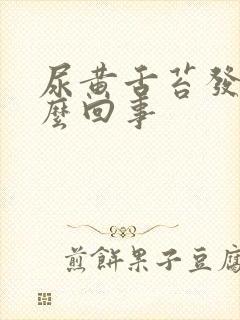 尿黄舌苔發
麼回事
煎餅果子豆腐